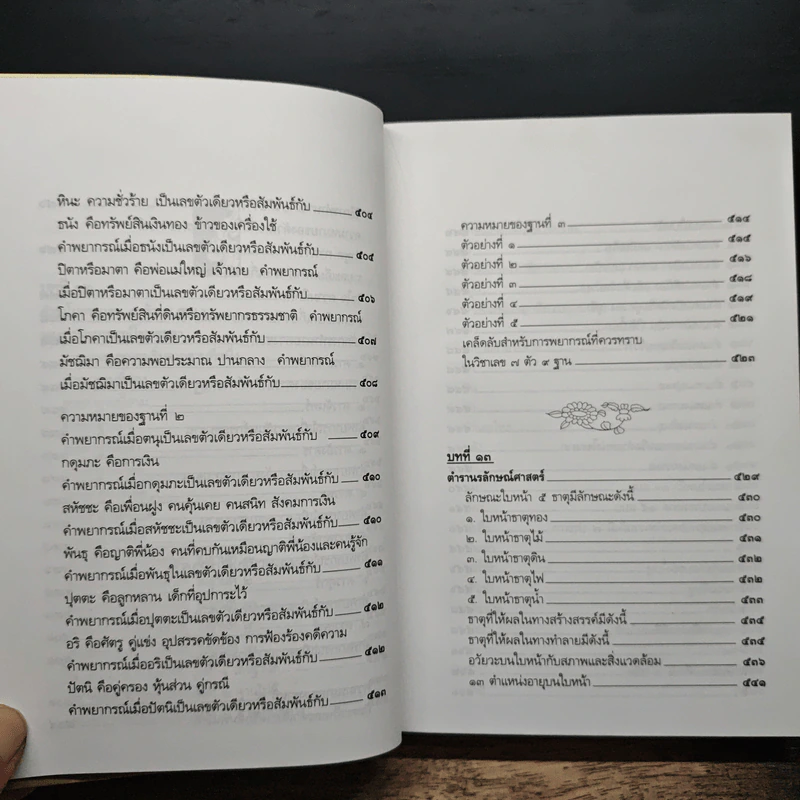 หินะ ความชั่วร้าย เป็นเลขตัวเดียวหรือสัมพันธ์กับ ๕๐๔
ธนัง คือทรัพย์สินเงินทอง ข้าวของเครื่องใช้
คำพยากรณ์เมื่อธนังเป็นเลขตัวเดียวหรือสัมพันธ์กับ ๕๐๕
ปิตาหรือมาตา คือพ่อแม่ใหญ่ เจ้านาย คำพยากรณ์
เมื่อปิตาหรือมาตาเป็นเลขตัวเดียวหรือสัมพันธ์กับ ๕๐๖
โภคา คือทรัพย์สินที่ดินหรือทรัพยากรธรรมชาติ คำพยากรณ์
เมื่อโภคาเป็นเลขตัวเดียวหรือสัมพันธ์กับ ๕๐๗
มัชฌิมา คือความพอประมาณ ปานกลาง คำพยากรณ์
เมื่อมัชฌิมาเป็นเลขตัวเดียวหรือสัมพันธ์กับ ๕๐๘
ความหมายของฐานที่ ๒
คำพยากรณ์เมื่อตนุเป็นเลขตัวเดียวหรือสัมพันธ์กับ ๕๐๙
กดุมภะ คือการเงิน
คำพยากรณ์เมื่อกดุมภะเป็นเลขตัวเดียวหรือสัมพันธ์กับ ๕๑๐
สหัชชะ คือเพื่อนฝูง คนคุ้นเคย คนสนิท สังคมการเงิน
คำพยากรณ์เมื่อสหัชชะเป็นเลขตัวเดียวหรือสัมพันธ์กับ ๕๑๐
พันธุ คือญาติพี่น้อง คนที่คบกันเหมือนญาติพี่น้องและคนรู้จัก
คำพยากรณ์เมื่อพันธุในเลขตัวเดียวหรือสัมพันธ์กับ ๕๑๑
ปุตตะ คือลูกหลาน เด็กที่อุปการะไว้
คำพยากรณ์เมื่อปุตตะเป็นเลขตัวเดียวหรือสัมพันธ์กับ ๕๑๒
อริ คือศัตรู คู่แข่ง อุปสรรคขัดข้อง การฟ้องร้องคดีความ
คำพยากรณ์เมื่ออริเป็นเลขตัวเดียวหรือสัมพันธ์กับ ๕๑๒
ปัตนิ คือคู่ครอง หุ้นส่วน คู่กรณี
คำพยากรณ์เมื่อปัตนิเป็นเลขตัวเดียวหรือสัมพันธ์กับ ๕๑๓
ความหมายของฐานที่ ๓ ๕๑๔
ตัวอย่างที่ ๑ ๕๑๕
ตัวอย่างที่ ๒ ๕๑๖
ตัวอย่างที่ ๓ ๕๑๘
ตัวอย่างที่ ๔ ๕๑๙
ตัวอย่างที่ ๕ ๕๒๑
เคล็ดลับสำหรับการพยากรณ์ที่ควรทราบ
ในวิชาเลข ๗ ตัว ๙ ฐาน ๕๒๓
บทที่ ๑๓
ตำรานรลักษณ์ศาสตร์ ๕๒๙
ลักษณะใบหน้า ๕ ธาตุมีลักษณะดังนี้ ๕๓๐
๑. ใบหน้าธาตุทอง ๕๓๐
๒. ใบหน้าธาตุไม้ ๕๓๑
๓. ใบหน้าธาตุดิน ๕๓๒
๔. ใบหน้าธาตุไฟ ๕๓๒
๕. ใบหน้าธาตุน้ำ ๕๓๓
ธาตุที่ให้ผลในทางสร้างสรรค์มีดังนี้ ๕๓๔
ธาตุที่ให้ผลในทางทำลายมีดังนี้ ๕๓๕
อวัยวะบนใบหน้ากับสภาพและสิ่งแวดล้อม ๕๓๖
๑๓ ตำแหน่งอายุบนใบหน้า ๕๔๑